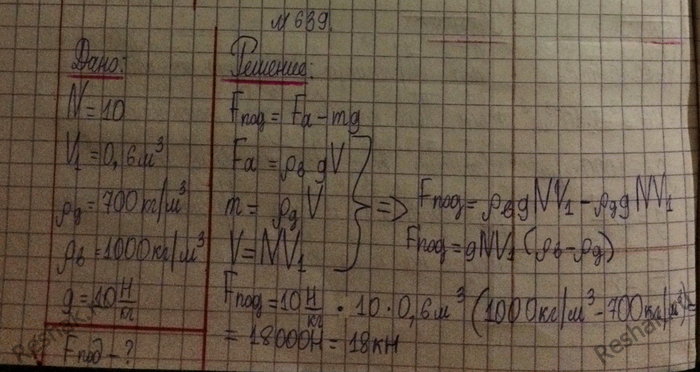 № 639.
Дано:
N = 10
V₁ = 0,6 м³
ρд = 700 кг/м³
ρв = 1000 кг/м³
g = 10 Н/кг
Fпод - ?
Решение:
Fпод = Fa - mg
Fa = ρв gV
m = ρд V
V = NV₁
=> Fпод = ρв g NV₁ - ρд g NV₁
Fпод = g NV₁ (ρв - ρд)
Fпод = 10 Н/кг · 10 · 0,6 м³ (1000 кг/м³ - 700 кг/м³) =
= 18000 Н = 18 кН